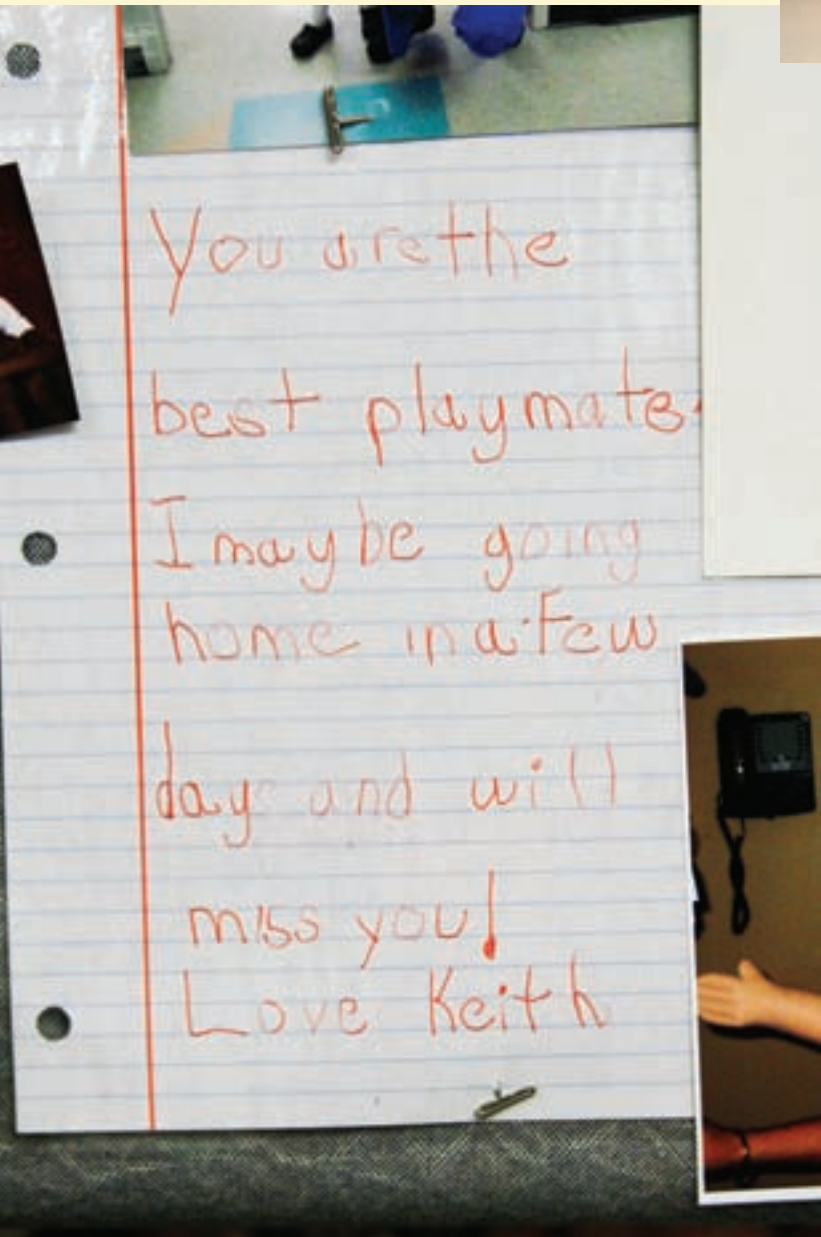 You are the
best playmate.
I may be going
home in a few
days and will
miss you!
Love Keith